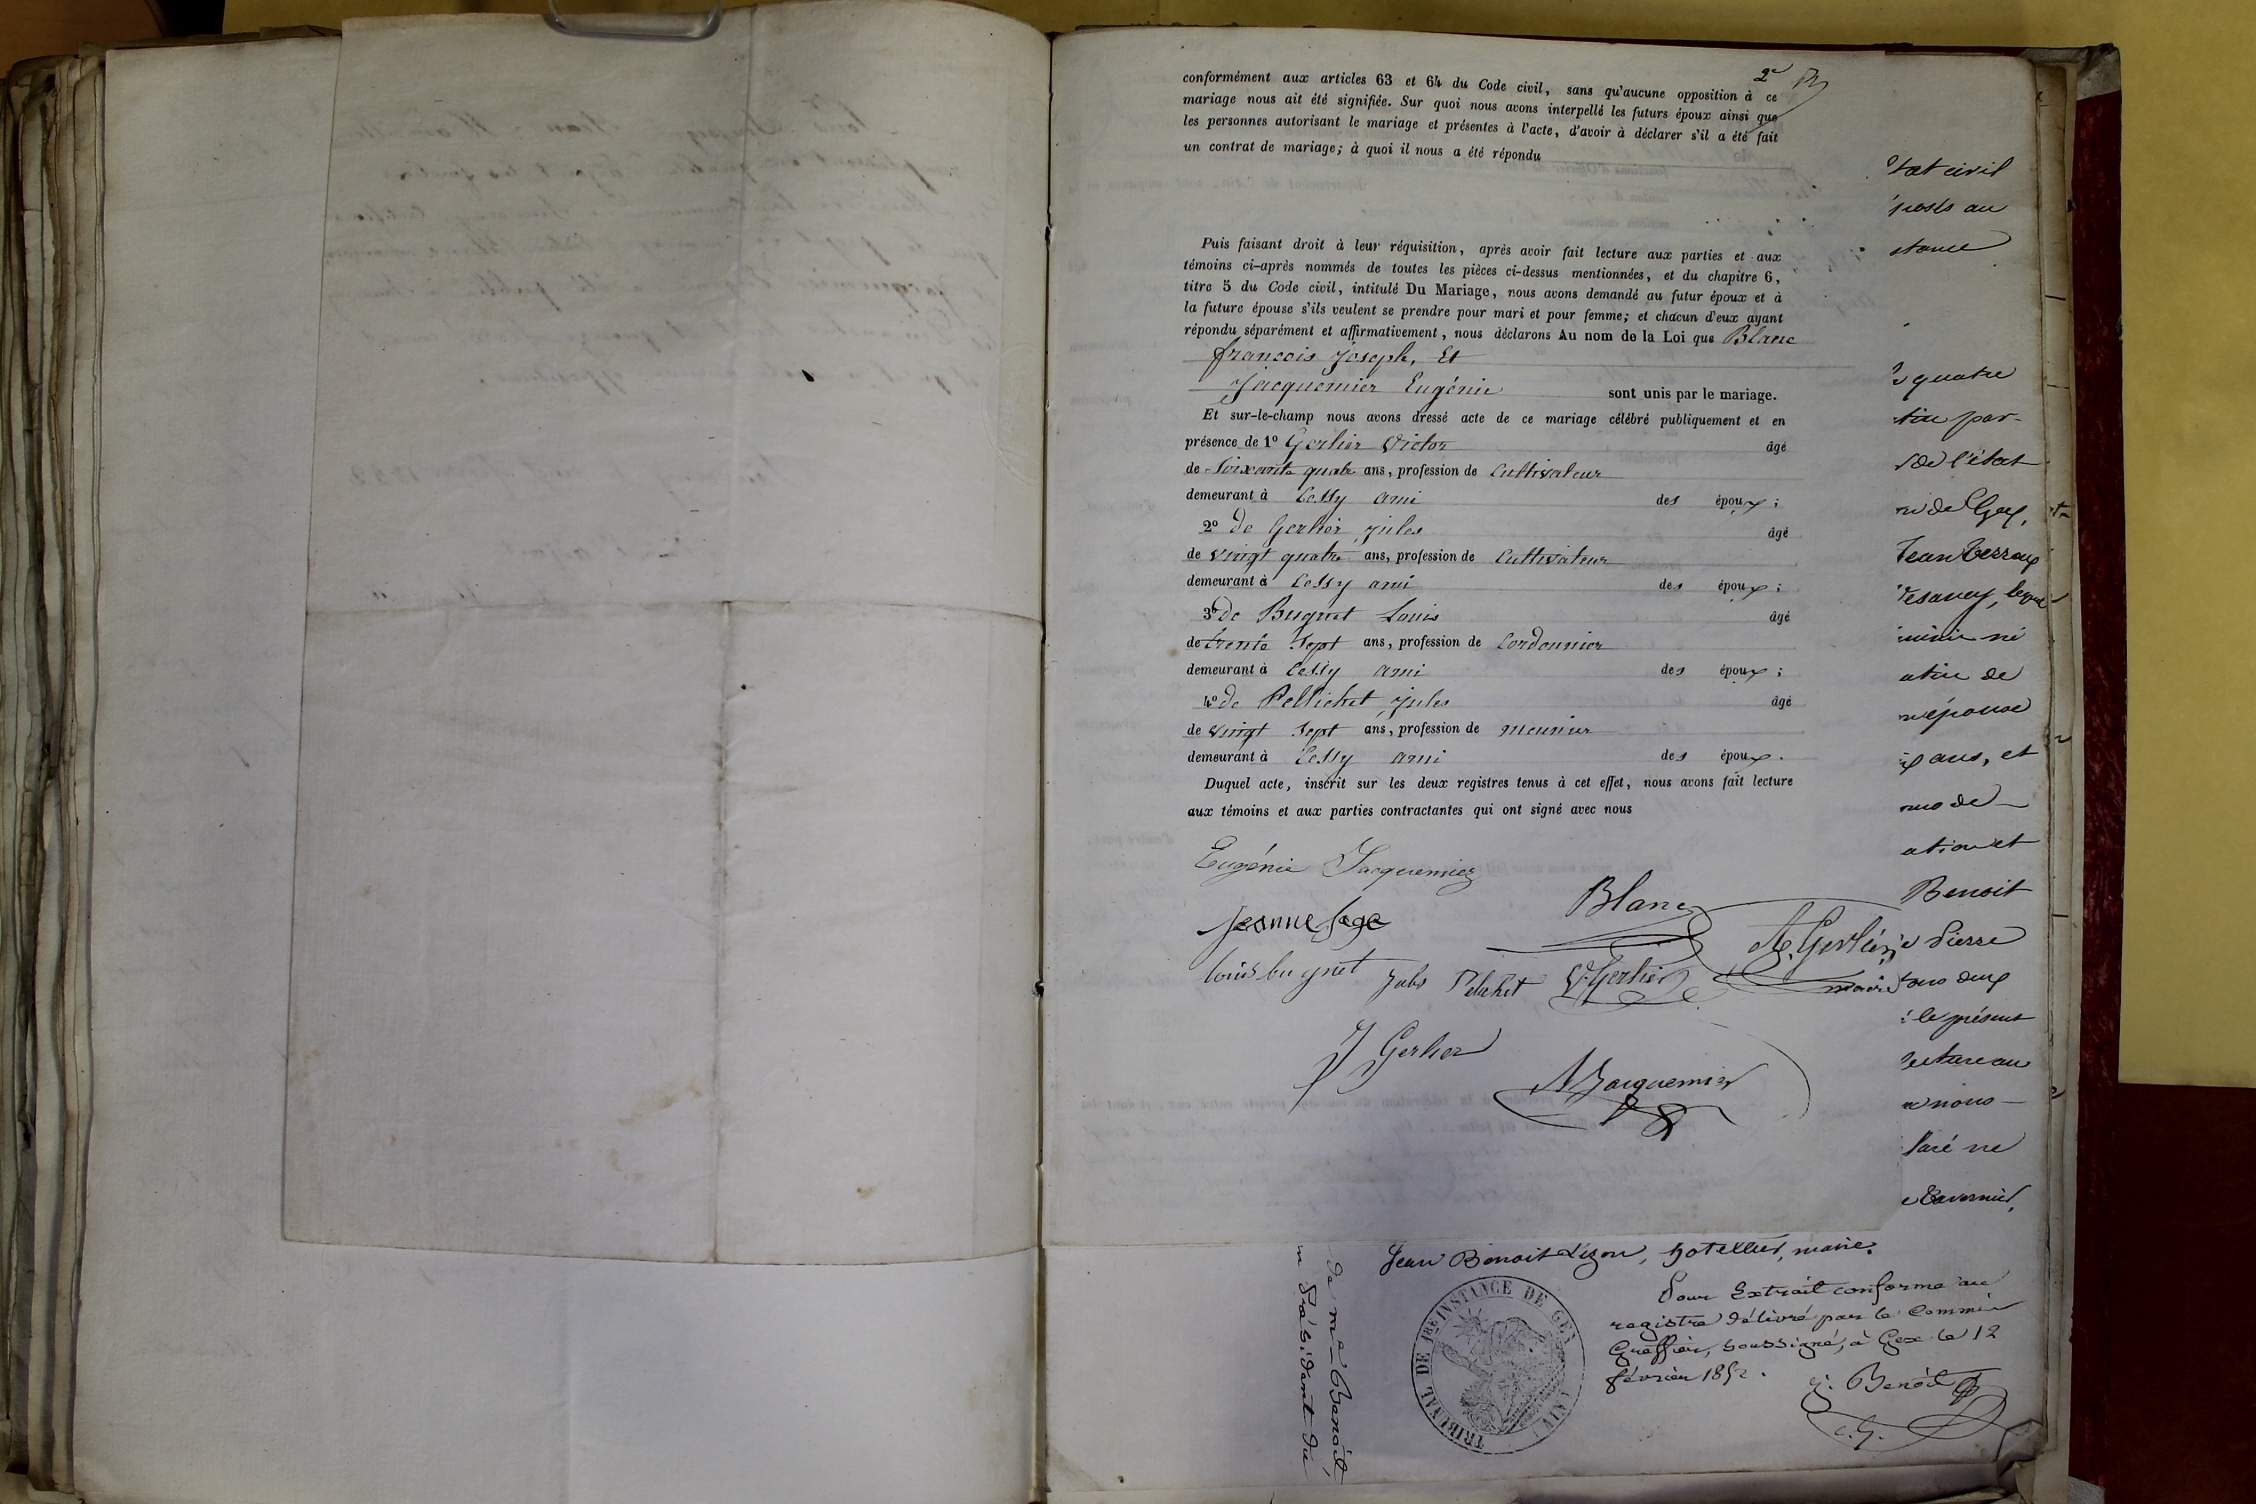 2e
conformément aux articles 63 et 64 du Code civil, sans qu'aucune opposition à ce
mariage nous ait été signifiée. Sur quoi nous avons interpellé les futurs époux ainsi que
les personnes autorisant le mariage et présentes à l'acte, d'avoir à déclarer s'il a été fait
un contrat de mariage; à quoi il nous a été répondu
Puis faisant droit à leur réquisition, après avoir fait lecture aux parties et aux
témoins ci-après nommés de toutes les pièces ci-dessus mentionnées, et du chapitre 6,
titre 5 du Code civil, intitulé Du Mariage, nous avons demandé au futur époux et à
la future épouse s'ils veulent se prendre pour mari et pour femme; et chacun d'eux ayant
répondu séparément et affirmativement, nous déclarons Au nom de la Loi que Blanc
françois Joseph, Et
Jacquemier Eugénie sont unis par le mariage.
Et sur-le-champ nous avons dressé acte de ce mariage célébré publiquement et en
présence de 1º Gerlier Victor âgé
de Soixante quatre ans, profession de Cultivateur
demeurant à Cessy ami des époux;
2º de Gerlier Jules âgé
de vingt quatre ans, profession de Cultivateur
demeurant à Cessy ami des époux;
3º de Bugnet Louis âgé
de trente Sept ans, profession de Cordonnier
demeurant à Cessy ami des époux;
4º de Pellichet Jules âgé
de vingt Sept ans, profession de meunier
demeurant à Cessy ami des époux.
Duquel acte, inscrit sur les deux registres tenus à cet effet, nous avons fait lecture
aux témoins et aux parties contractantes qui ont signé avec nous
Eugénie Jacquemier
Blanc
Jeanne Sage
Gerlier
maire
louis bugnet Jules Pelichet V. Gerlier
J Gerlier
A Jacquemier
tat civil
posés au
stance
quatre
par-
de l'état
de Gex,
Jean
né
de
épouse
ans, et
de
et
Benoit
Pierre
deux
le présent
lecture au
nous
laré ne
Tavernier,
Jean Benoit Lizon, hotellier, maire.
Pour Extrait conforme au
registre délivré par le Commis
Greffier, soussigné, à Gex le 12
février 1852.
J. Benoît
c. g.
TRIBUNAL DE 1RE INSTANCE DE GEX (AIN)
de Me Benoît,
Président du